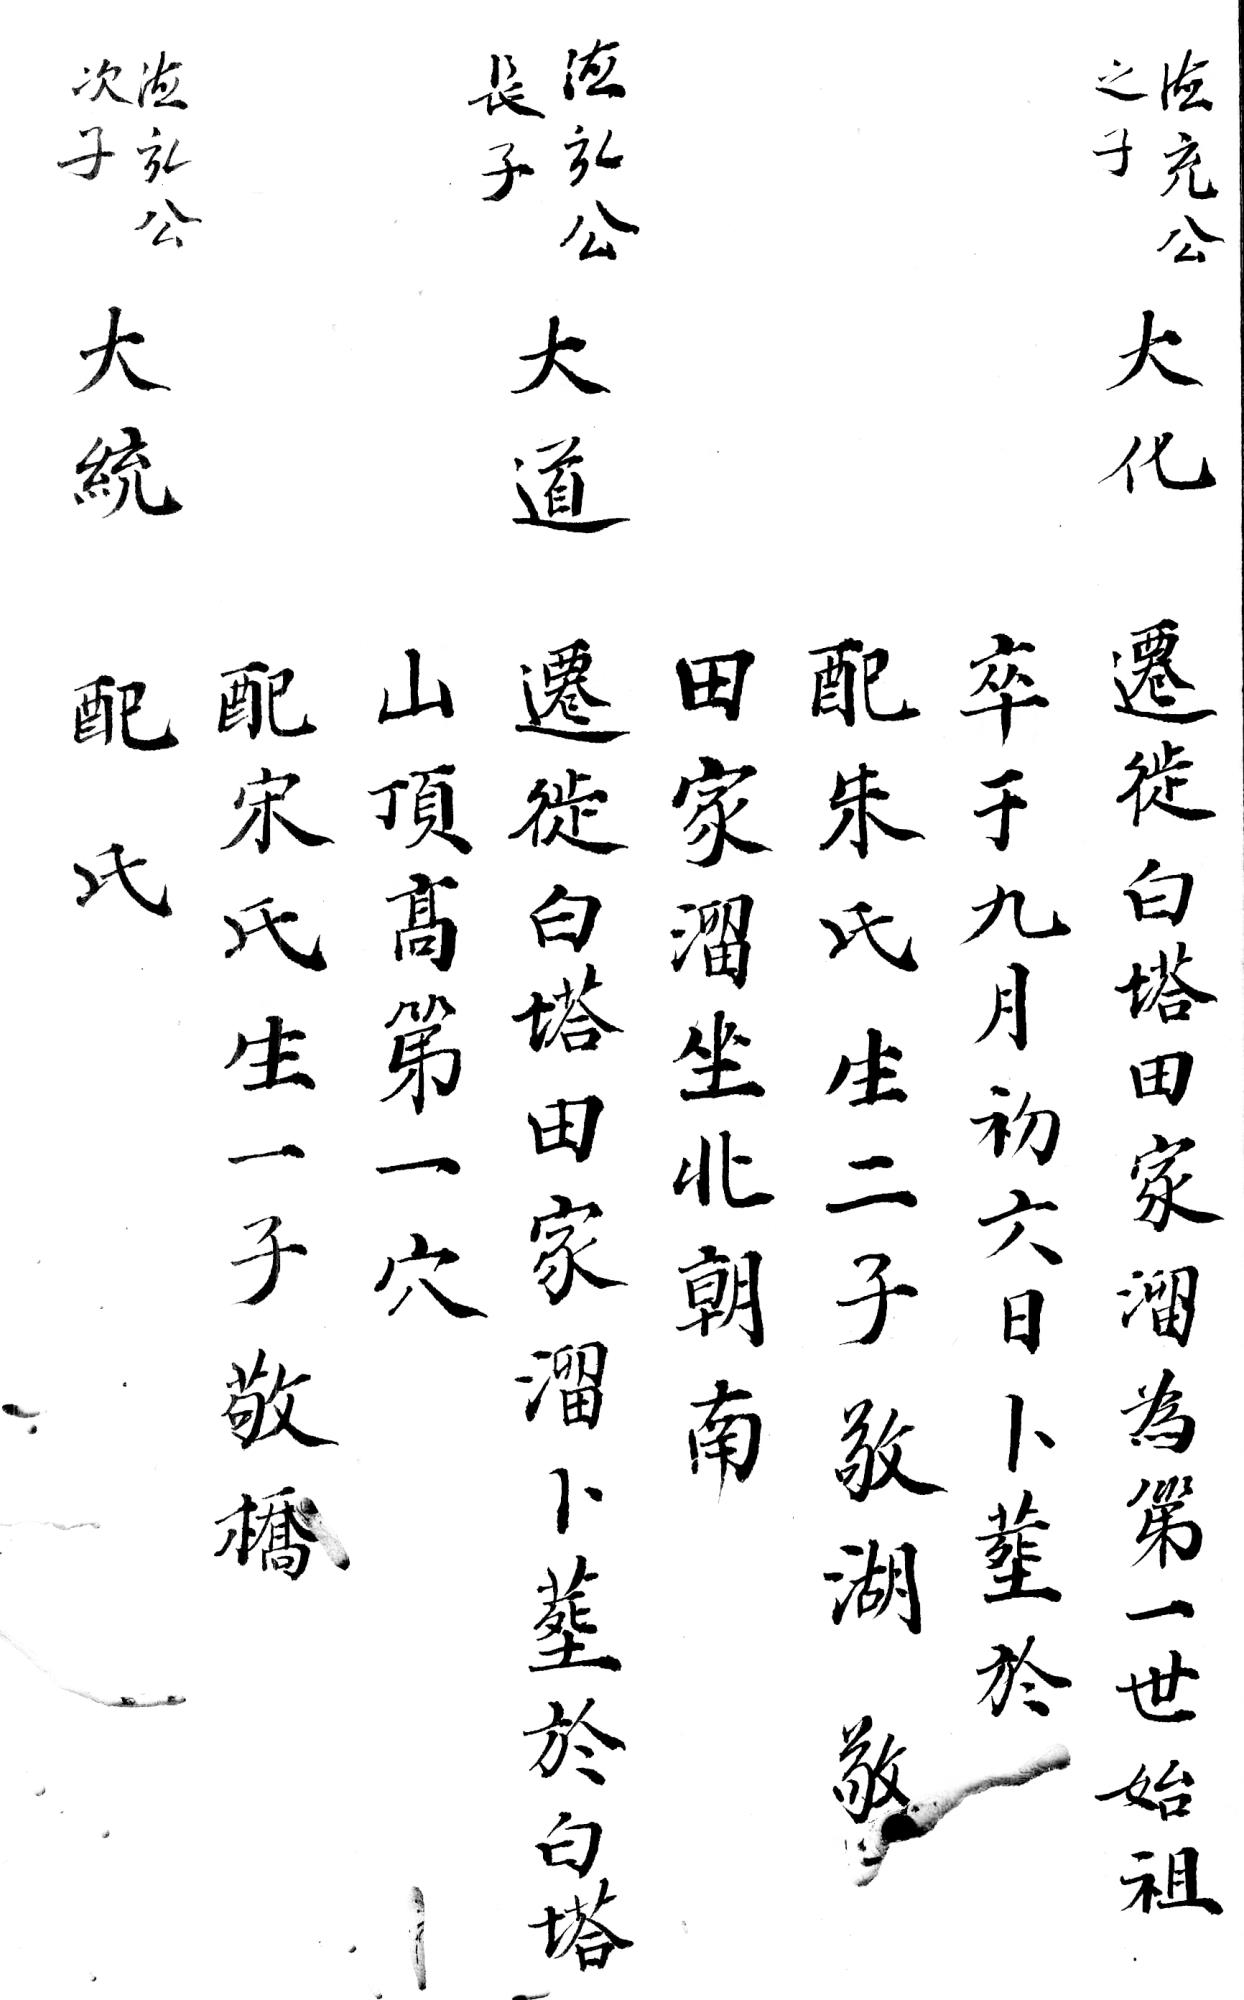 德充公
之子
大化
遷徙白塔田家溜為第一世始祖
卒于九月初六日卜塟於
配朱氏生二子敬湖 敬
田家溜坐北朝南
德弘公
長子
大道
遷徙白塔田家溜卜塟於白塔
山頂髙第一穴
配宋氏生一子敬橋
德弘公
次子
大統
配 氏